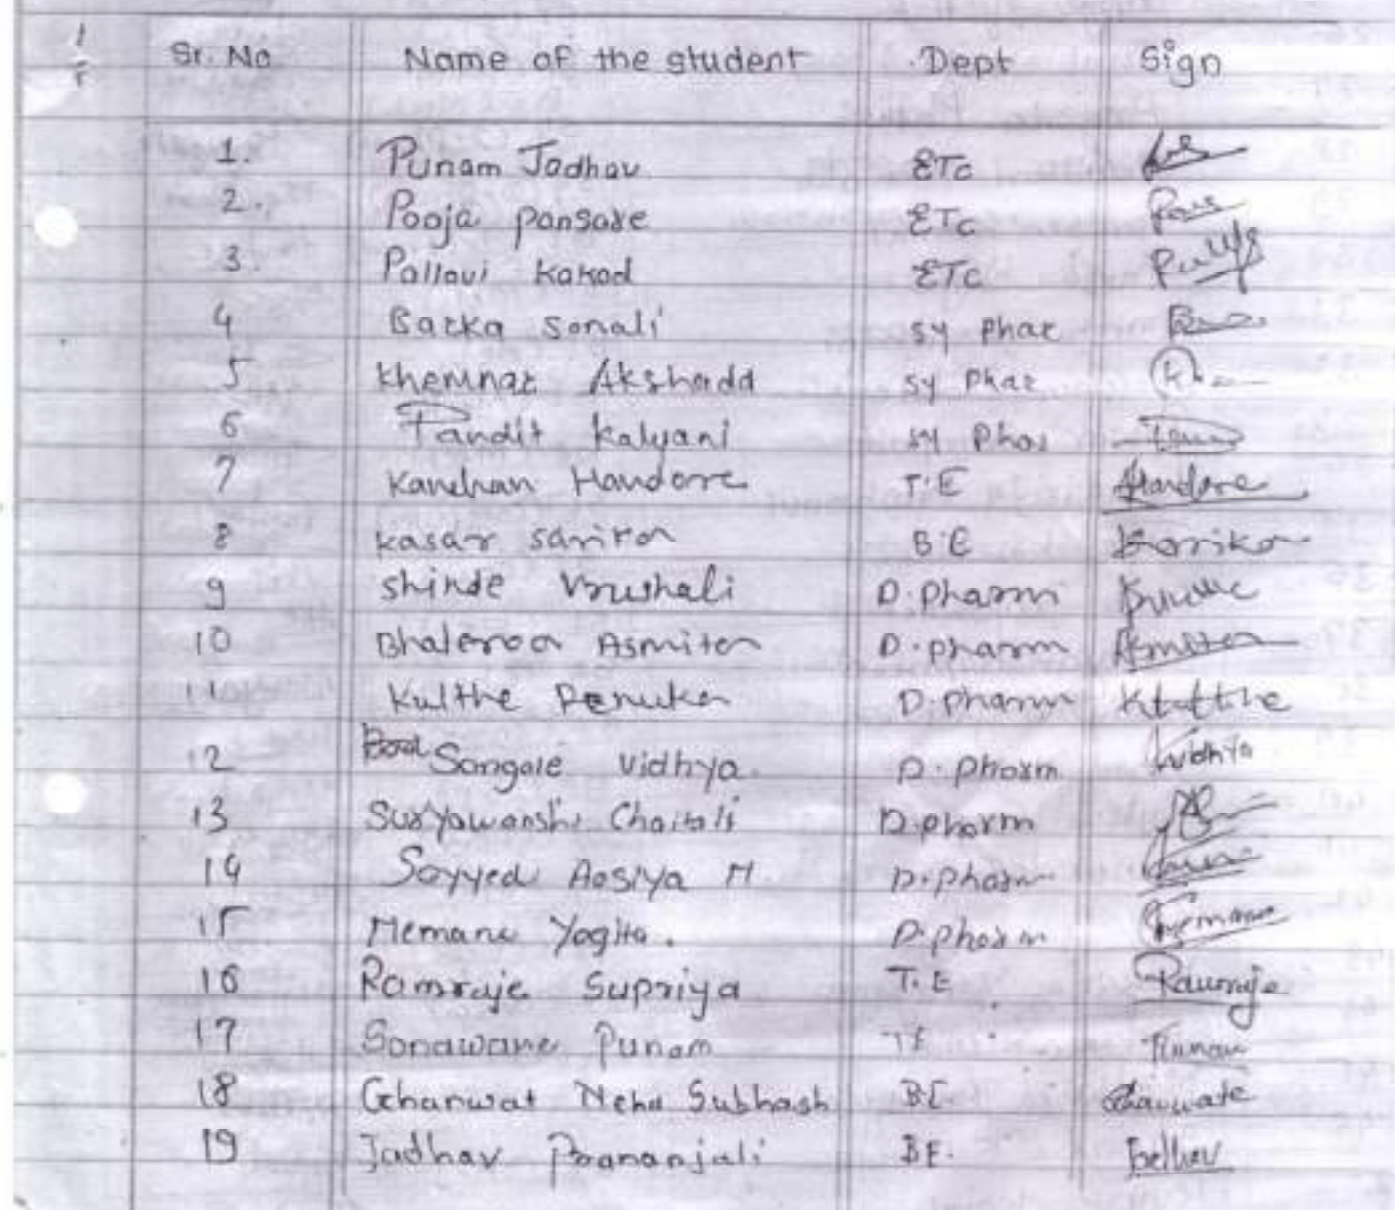 Sr. No Name of the student Dept Sign
1. Punam Jadhav ETC
2. Pooja pansare ETC
3. Pallavi Kakad ETC
4 Barka Sonali sy phar
5 Khemnar Akshada sy Phar
6 Pandit Kalyani sy Phar
7 Kanchan Handore T.E Handore
8 Kasar Sarika B.E Sarika
9 shinde Vrushali D.pharm
10 Bhalerao Asmita D.pharm Asmita
11 Kulthe Renuka D.pharm Kulthe
12 Sangale Vidhya. D.pharm Vidhya
13 Suryawanshi Chaitali D.pharm
14 Sayyed Aasiya M. D.pharm
15 Memane Yogita. D.pharm
16 Ramraje Supriya T.E Ramraje
17 Sonawane Punam TE Punam
18 Ghanwat Neha Subhash B.E.
19 Jadhav Prananjali BE. Jadhav